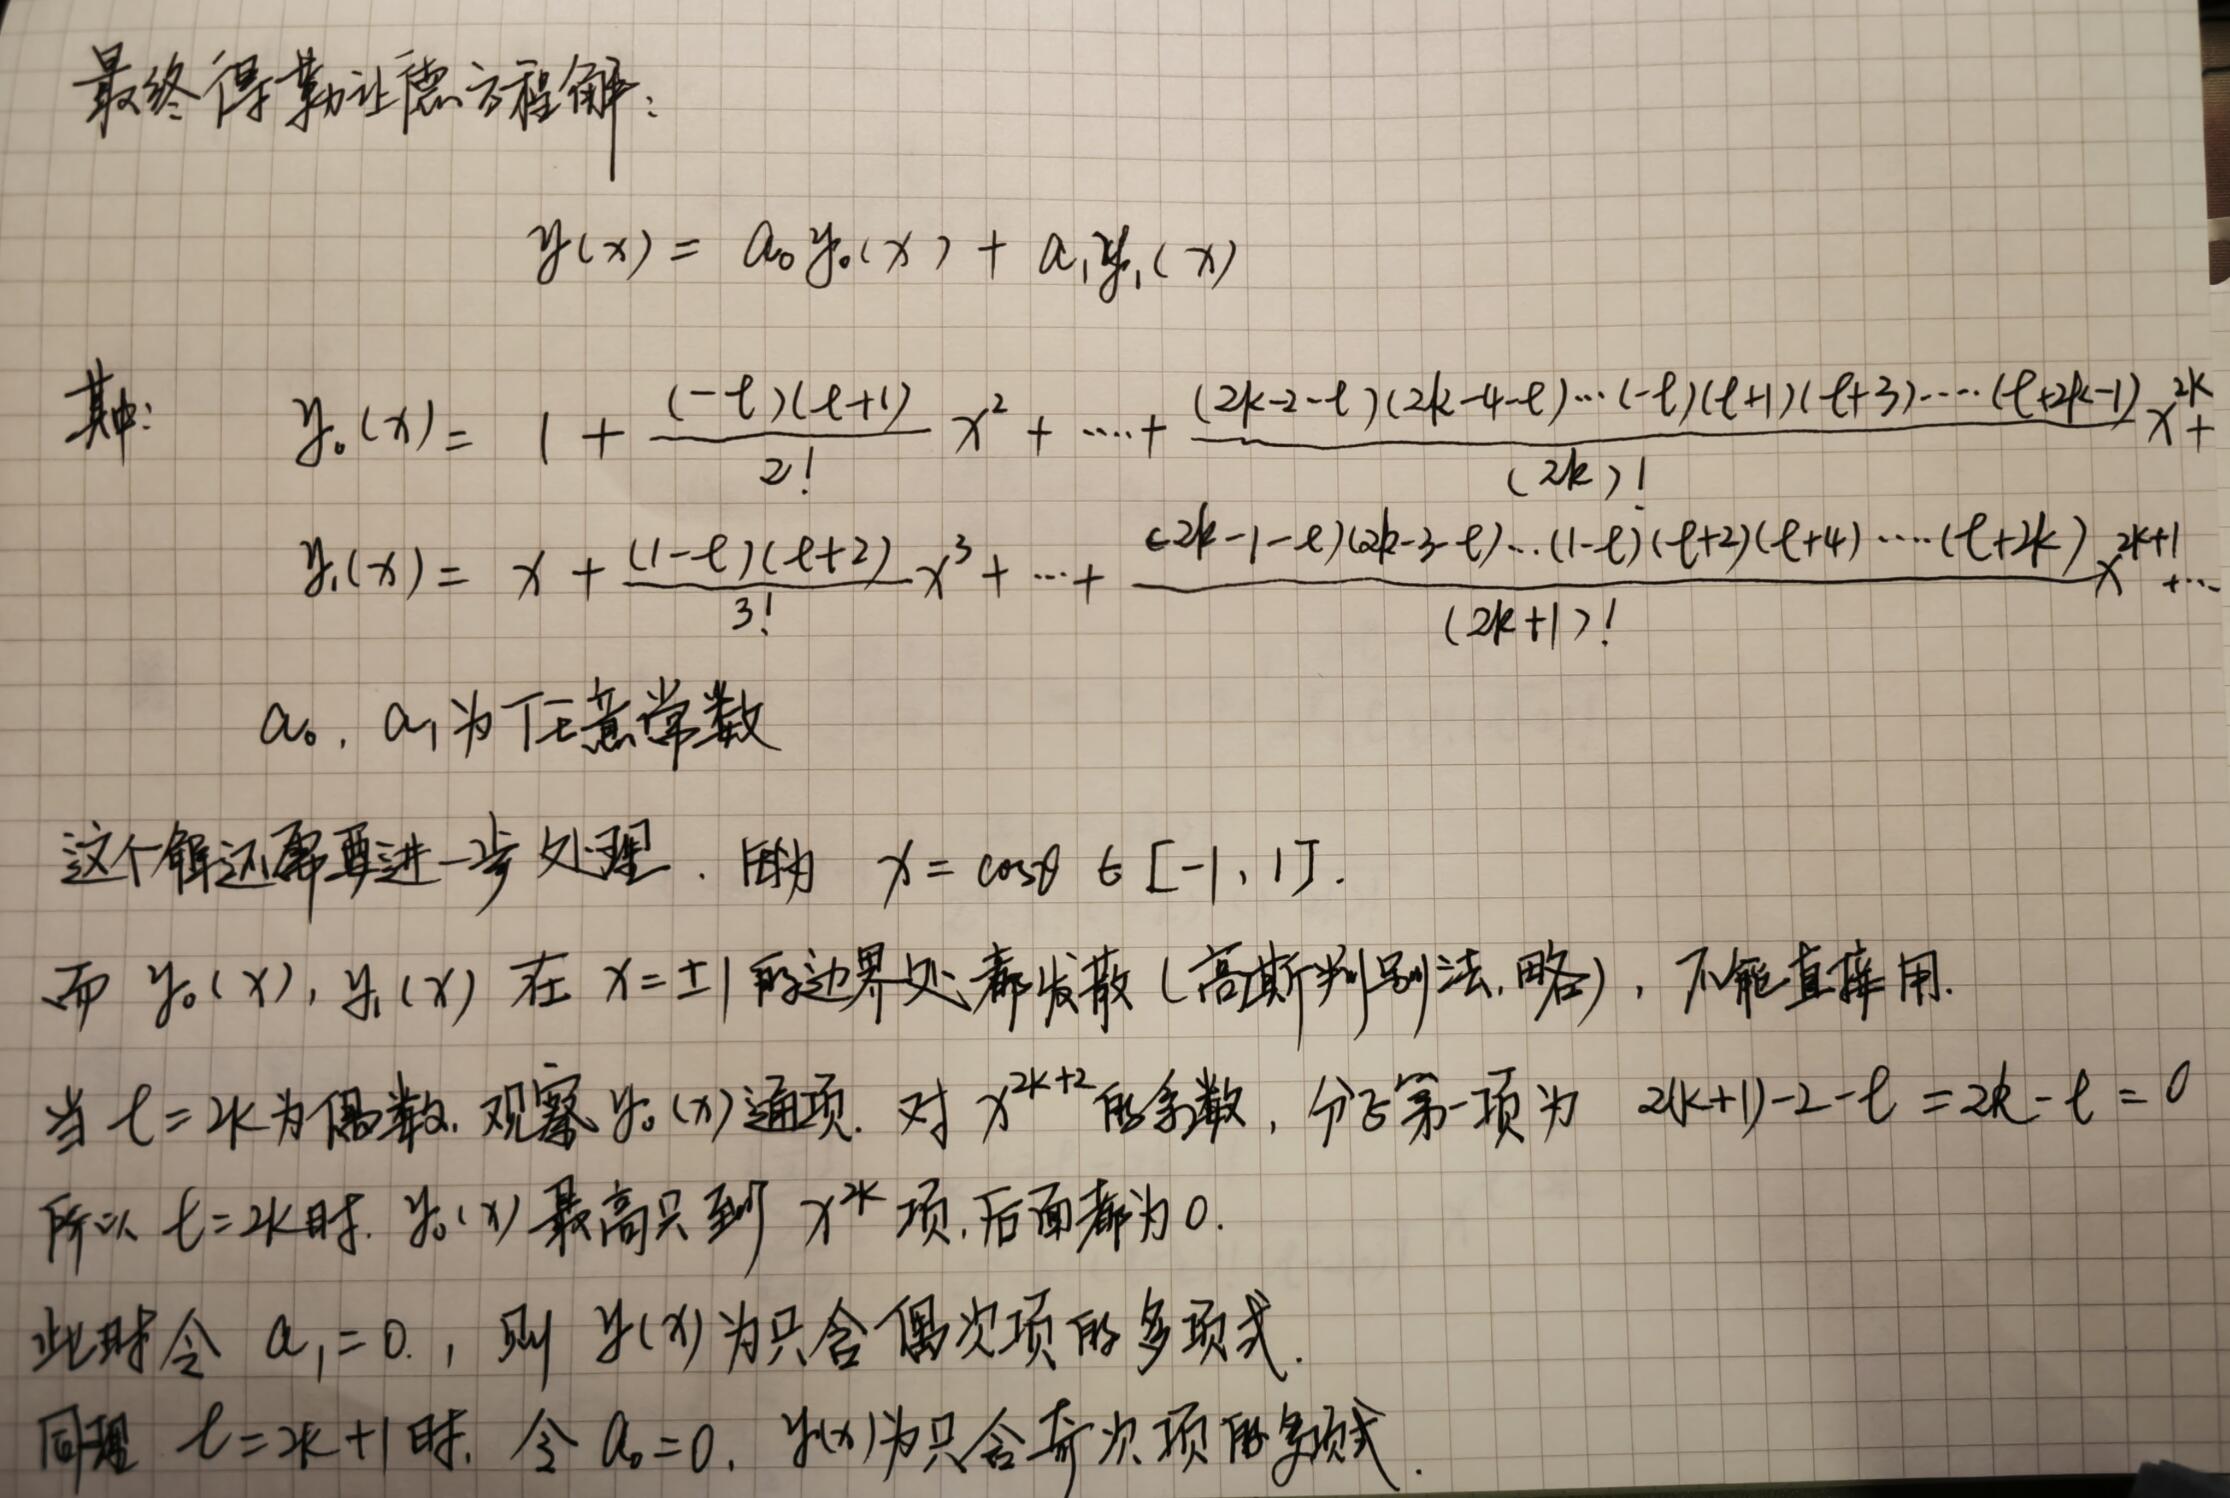 最终得勒让德方程解:
y(x) = a₀y₀(x) + a₁y₁(x)
其中: y₀(x) = 1 + (-ℓ)(ℓ+1)/2! x² + ····+ (2k-2-ℓ)(2k-4-ℓ)···(-ℓ)(ℓ+1)(ℓ+3)····(ℓ+2k-1)/(2k)! x²ᵏ+
y₁(x) = x + (1-ℓ)(ℓ+2)/3! x³ + ···+ (2k-1-ℓ)(2k-3-ℓ)···(1-ℓ)(ℓ+2)(ℓ+4)····(ℓ+2k)/(2k+1)! x²ᵏ⁺¹+···
a₀, a₁为任意常数
这个解还需要进一步处理. 因为 x = cosθ ∈ [-1, 1].
而 y₀(x), y₁(x) 在 x=±1的边界处都发散(高斯判别法,略), 不能直接用.
当 ℓ=2k为偶数. 观察 y₀(x)通项. 对 x²ᵏ⁺²的系数, 分子第一项为 2(k+1)-2-ℓ = 2k-ℓ = 0
所以 ℓ=2k时. y₀(x) 最高只到 x²ᵏ 项, 后面都为0.
此时令 a₁=0., 则 y(x)为只含偶次项的多项式.
同理 ℓ=2k+1时. 令 a₀=0. y(x)为只含奇次项的多项式.